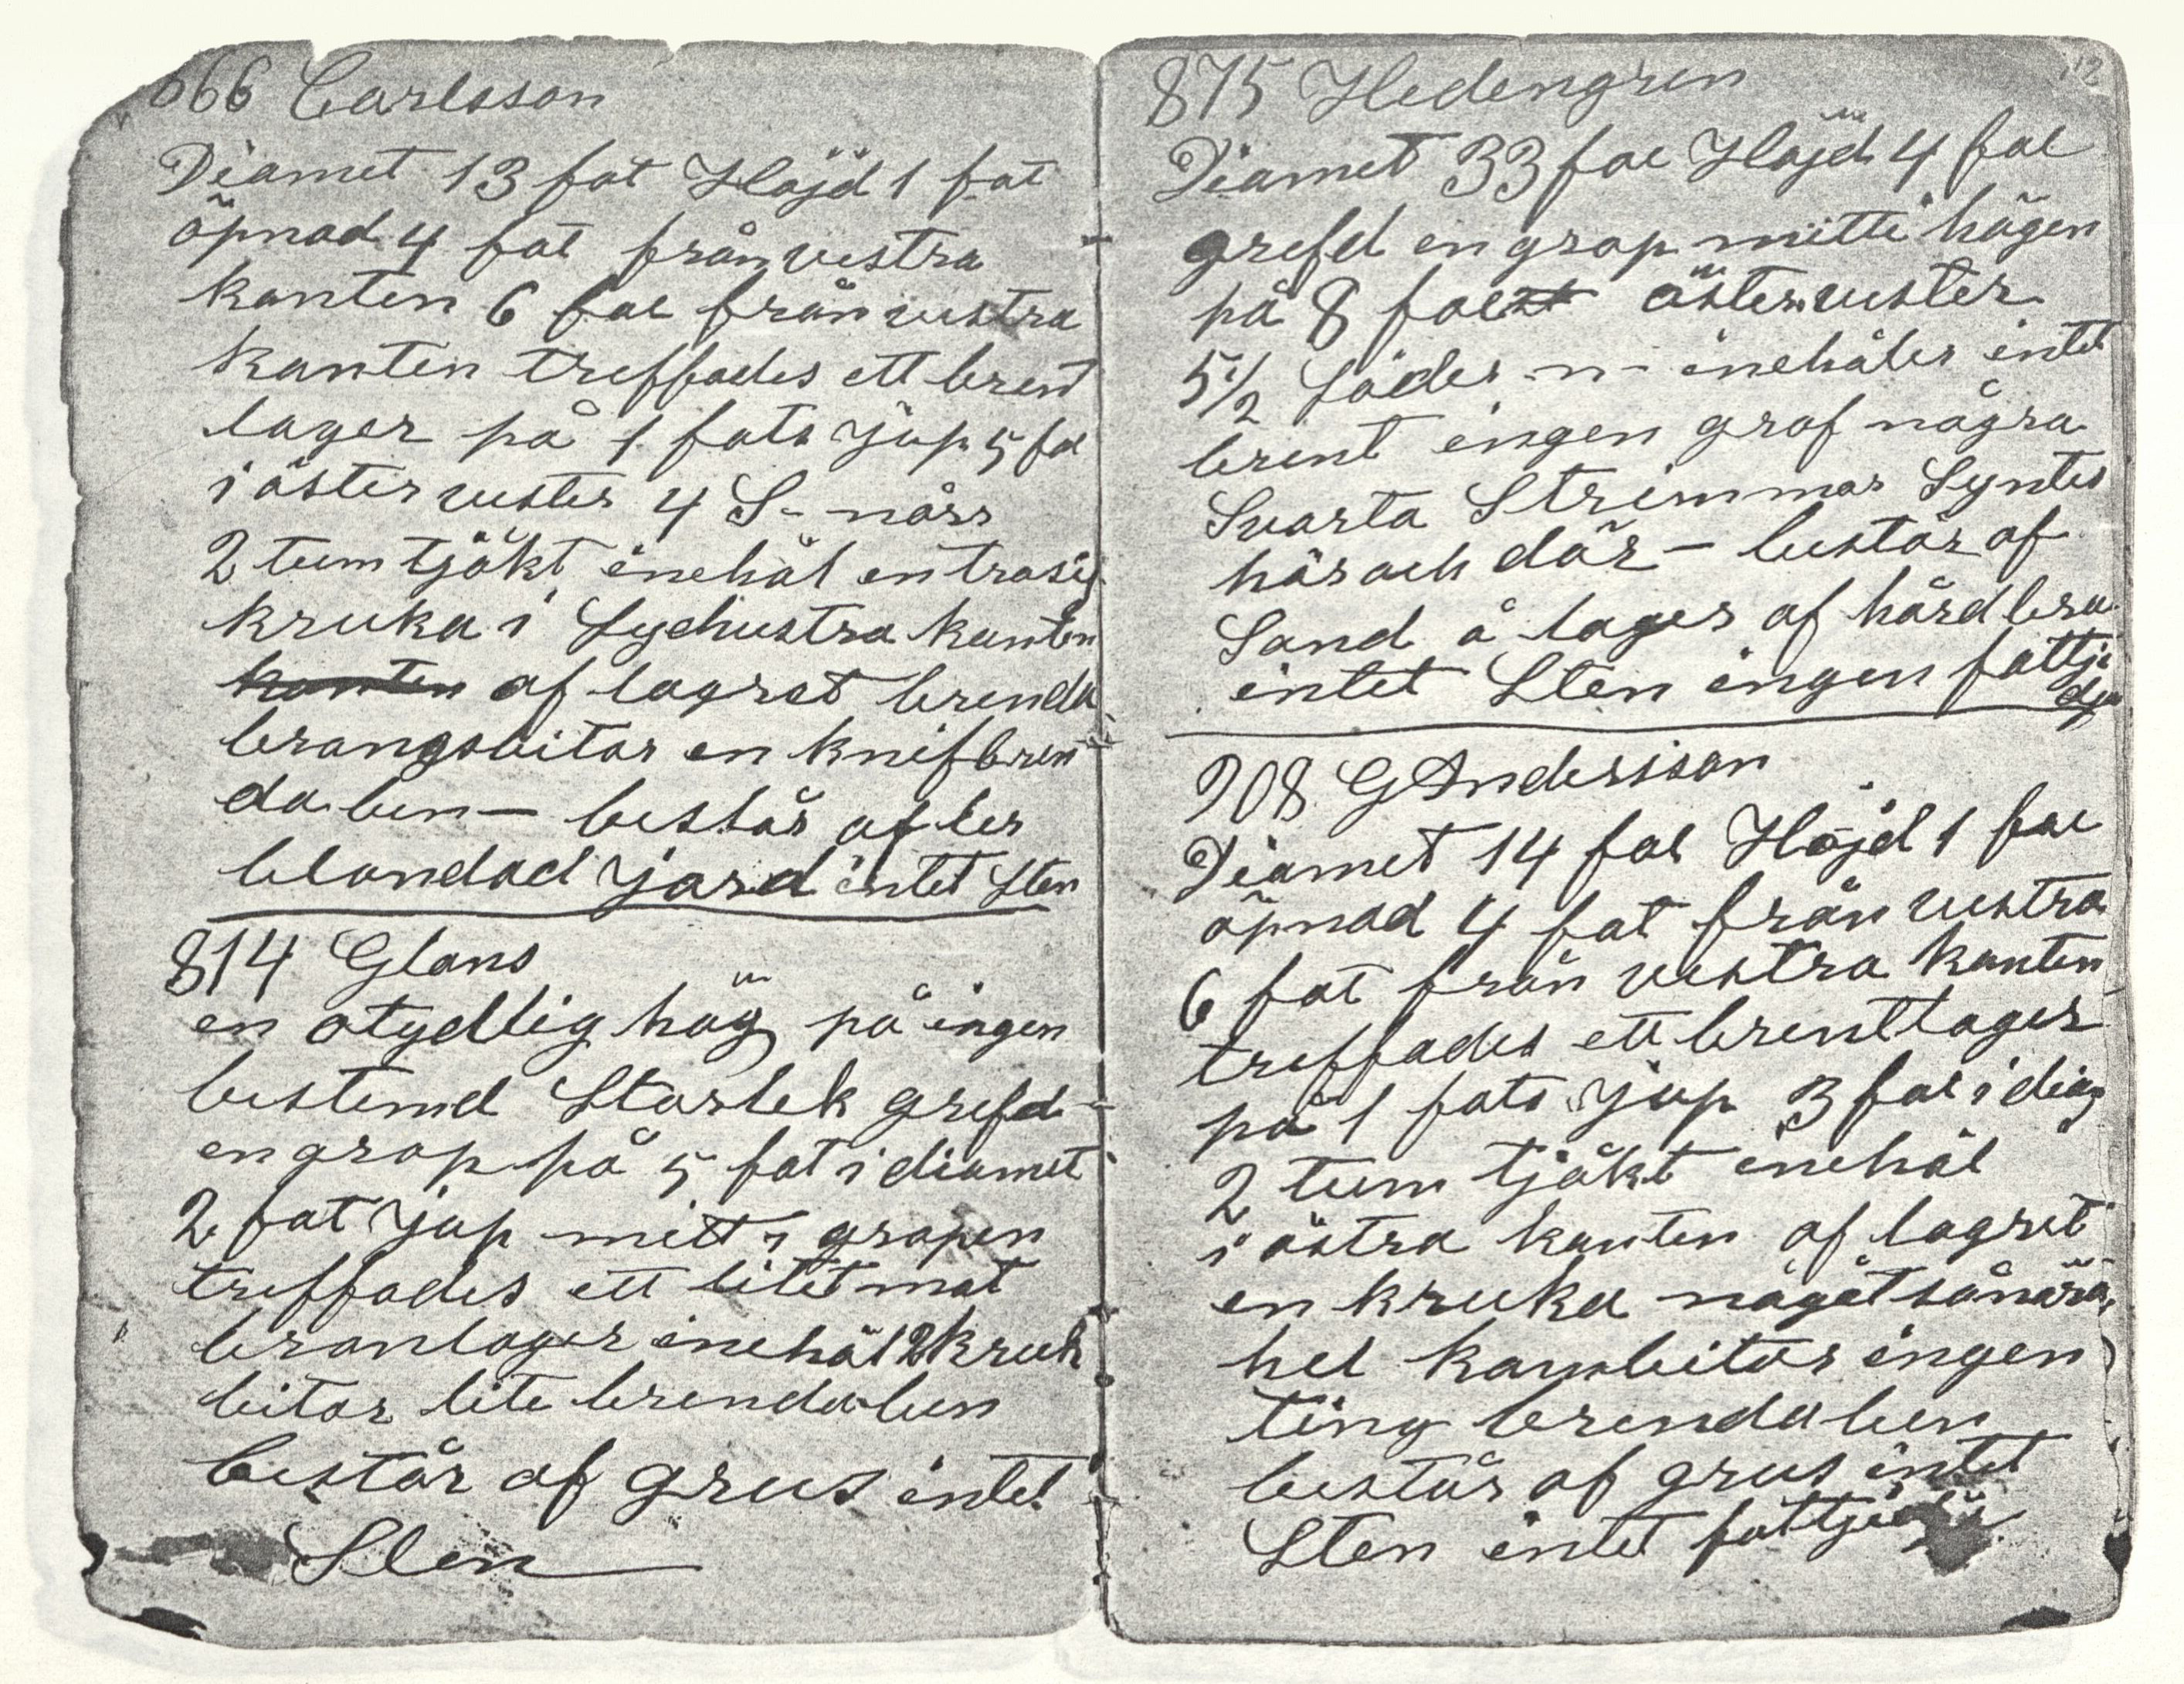 666 Carlsson
Diamet 13 fot Höjd 1 fot
öpnad 4 fot från vestra
kanten 6 fot från vestra
kanten treffades ett brent
lager på 1 fots jup 5 fot
i öster vester 4 S- nörr
2 tum tjökt inehöl en trasig
kruka i Sydvestra kanten
kanten af lagret brenda
bronsbitar en knif bren
da ben — består af ler
blandad jord intet Sten
814 Glans
en otydlig hög på ingen
bestemd Storlek grefd
en grop på 5 fot i diamet
2 fot jup mitt i gropen
treffades ett litet mat
branlager inehöl 2 kruk
bitar lite brenda ben
består af grus intet
Sten
875 Hedengren
Diamet 33 fot Höjd 4 fot
grefd en grop mitt i högen
på 8 fot öster vester
5 1/2 Söder -n- inehåler intet
brent ingen graf några
Svarta Strimmor Syntes
här och där — består af
Sand å lager af hård
intet Sten ingen fottje
dja
908 G Andersson
Diamet 14 fot Höjd 1 fot
öpnad 4 fot från vestra
6 fot från vestra kanten
treffades ett brent lager
på 1 fots jup 3 fot i diam
2 tum tjökt inehöl
i östra kanten af lagret
en kruka någåt sånär
hel kambitar ingen
ting brenda ben
består af grus intet
Sten intet